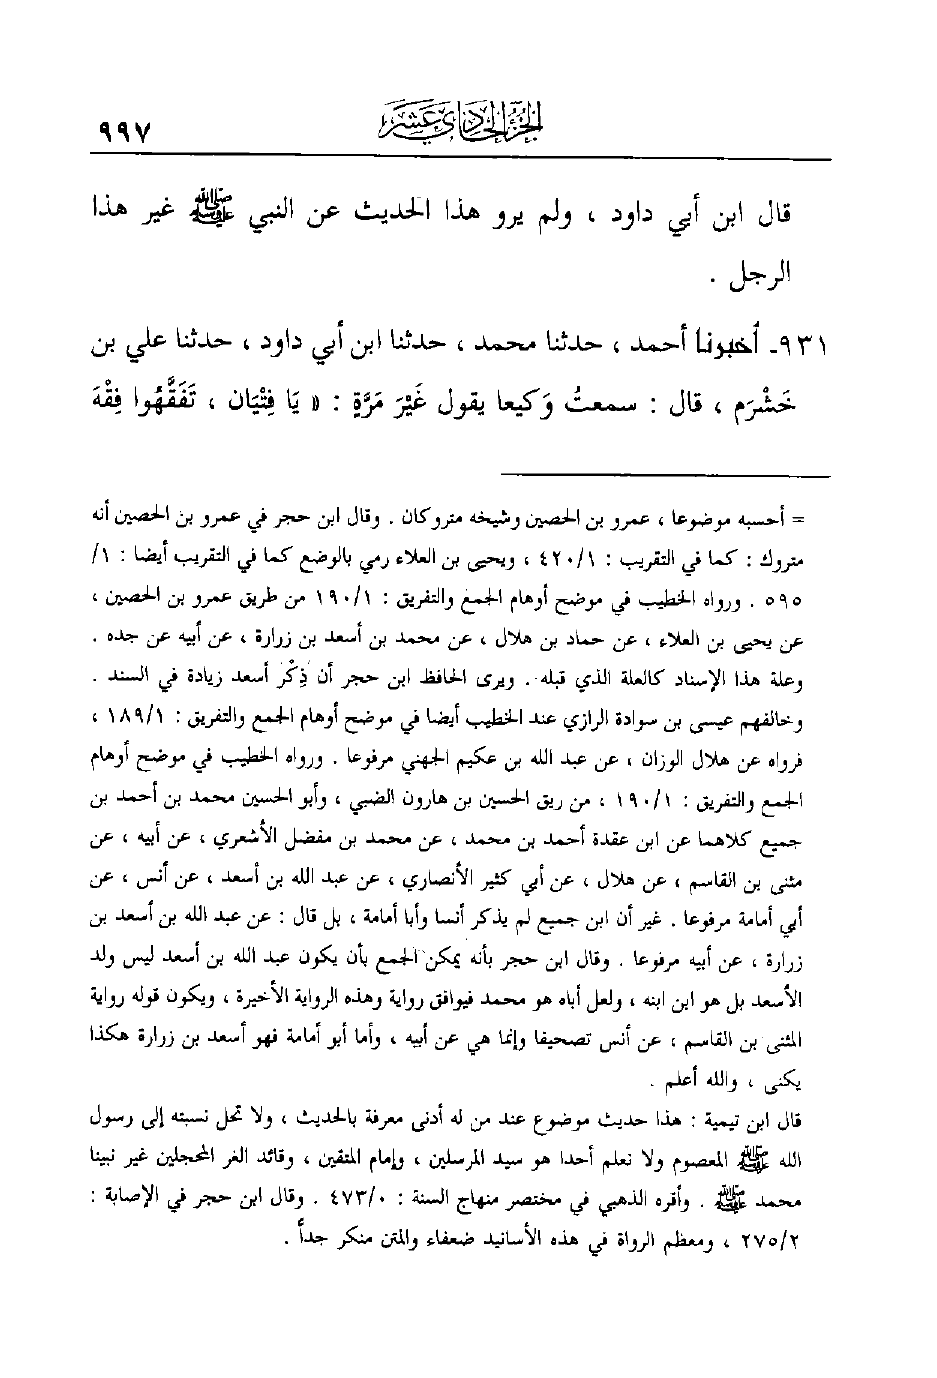 الجزء الحادي عشر
٩٩٧
قال ابن أبي داود ، ولم يرو هذا الحديث عن النبي ﷺ غير هذا
الرجل .
٩٣١- أخبرنا أحمد ، حدثنا محمد ، حدثنا ابن أبي داود ، حدثنا علي بن
خَشْرَم ، قال : سمعتُ وَكيعا يقول غَيْرَ مَرَّةٍ : « يَا فِتْيَان ، تَفَقَّهُوا فِقْهَ
= أحسبه موضوعا ، عمرو بن الحصين وشيخه متروكان . وقال ابن حجر في عمرو بن الحصين أنه
متروك : كما في التقريب : ٤٢٠/١ ، ويحيى بن العلاء رمي بالوضع كما في التقريب أيضا : ١/
٥٩٥ . ورواه الخطيب في موضح أوهام الجمع والتفريق : ١٩٠/١ من طريق عمرو بن الحصين ،
عن يحيى بن العلاء ، عن حماد بن هلال ، عن محمد بن أسعد بن زرارة ، عن أبيه عن جده .
وعلة هذا الإسناد كالعلة الذي قبله . ويرى الحافظ ابن حجر أن ذِكْر أسعد زيادة في السند .
وخالفهم عيسى بن سوادة الرازي عند الخطيب أيضا في موضح أوهام الجمع والتفريق : ١٨٩/١ ،
فرواه عن هلال الوزان ، عن عبد الله بن عكيم الجهني مرفوعا . ورواه الخطيب في موضح أوهام
الجمع والتفريق : ١٩٠/١ ، من ريق الحسين بن هارون الضبي ، وأبو الحسين محمد بن أحمد بن
جميع كلاهما عن ابن عقدة أحمد بن محمد ، عن محمد بن مفضل الأشعري ، عن أبيه ، عن
مثنى بن القاسم ، عن هلال ، عن أبي كثير الأنصاري ، عن عبد الله بن أسعد ، عن أنس ، عن
أبي أمامة مرفوعا . غير أن ابن جميع لم يذكر أنسا وأبا أمامة ، بل قال : عن عبد الله بن أسعد بن
زرارة ، عن أبيه مرفوعا . وقال ابن حجر بأنه يمكن الجمع بأن يكون عبد الله بن أسعد ليس ولد
الأسعد بل هو ابن ابنه ، ولعل أباه هو محمد فيوافق رواية وهذه الرواية الأخيرة ، ويكون قوله رواية
المثنى بن القاسم ، عن أنس تصحيفا وإنما هي عن أبيه ، وأما أبو أمامة فهو أسعد بن زرارة هكذا
يكنى ، والله أعلم .
قال ابن تيمية : هذا حديث موضوع عند من له أدنى معرفة بالحديث ، ولا تحل نسبته إلى رسول
الله ﷺ المعصوم ولا نعلم أحدا هو سيد المرسلين ، وإمام المتقين ، وقائد الغر المحجلين غير نبينا
محمد ﷺ . وأقره الذهبي في مختصر منهاج السنة : ٤٧٣/٠ . وقال ابن حجر في الإصابة :
٢٧٥/٢ ، ومعظم الرواة في هذه الأسانيد ضعفاء والمتن منكر جداً .